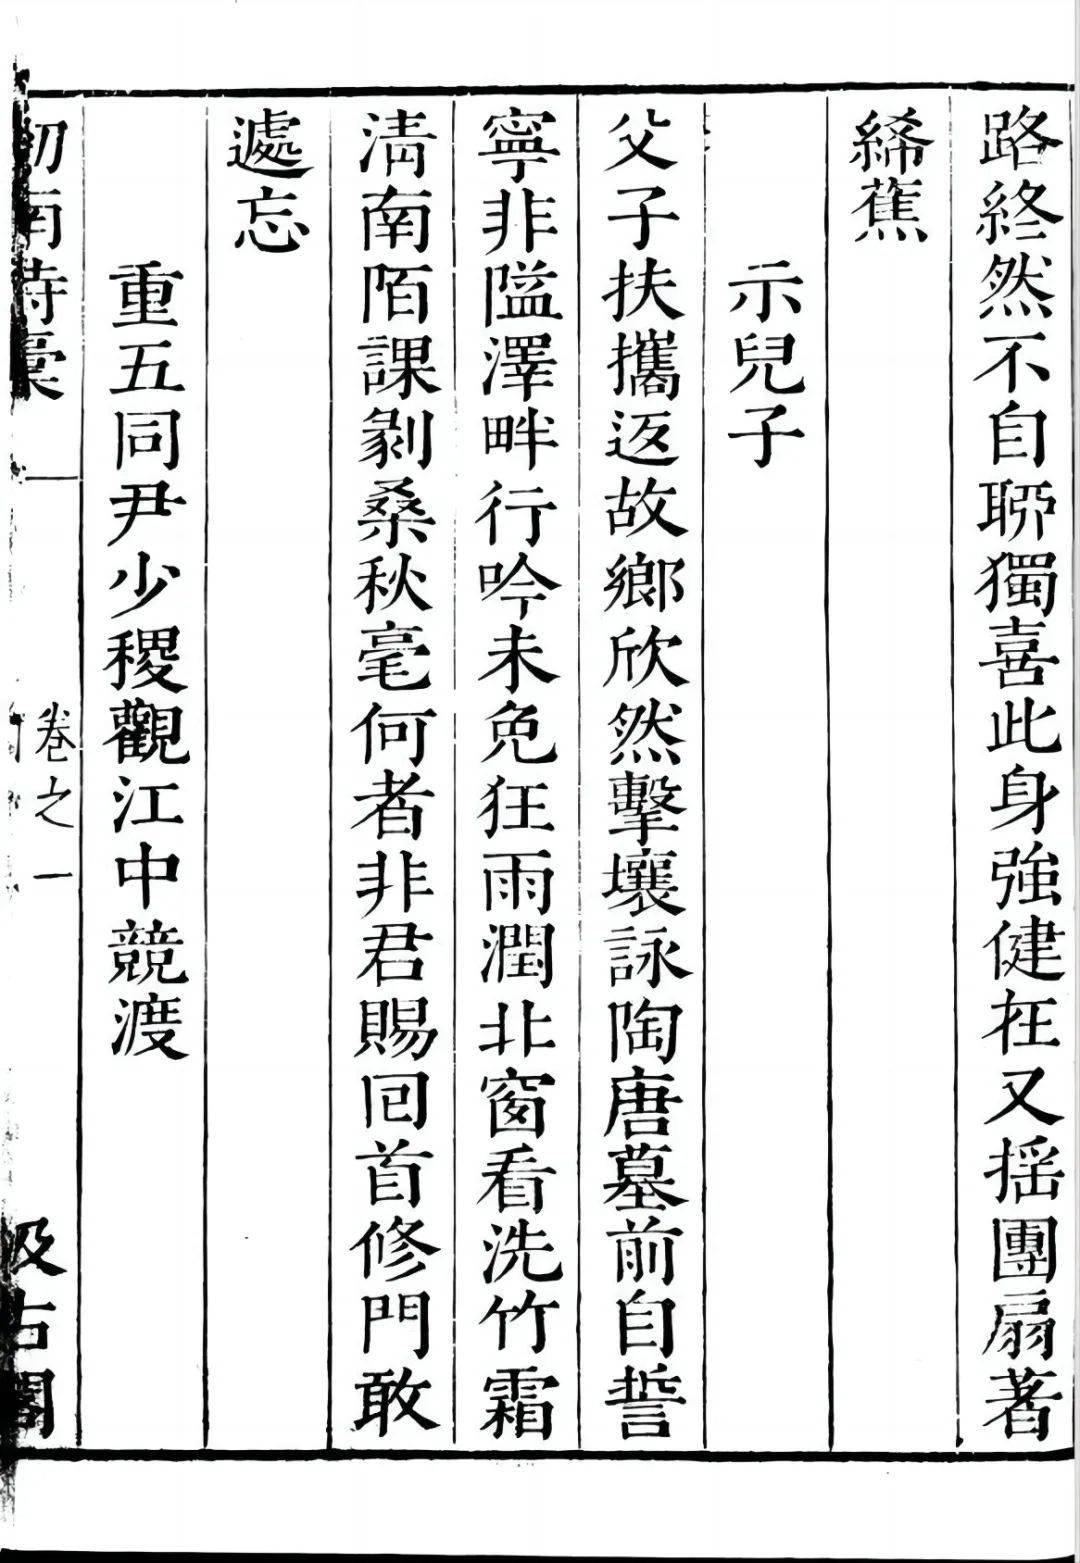 路終然不自聊獨喜此身強健在又揺團扇著
絺蕉
示兒子
父子扶攜返故鄉欣然擊壤詠陶唐墓前自誓
寧非隘澤畔行吟未免狂雨潤北窗看洗竹霜
清南陌課剝桑秋毫何者非君賜回首修門敢
遽忘
重五同尹少稷觀江中競渡
劒南詩稾
卷之一
汲古閣